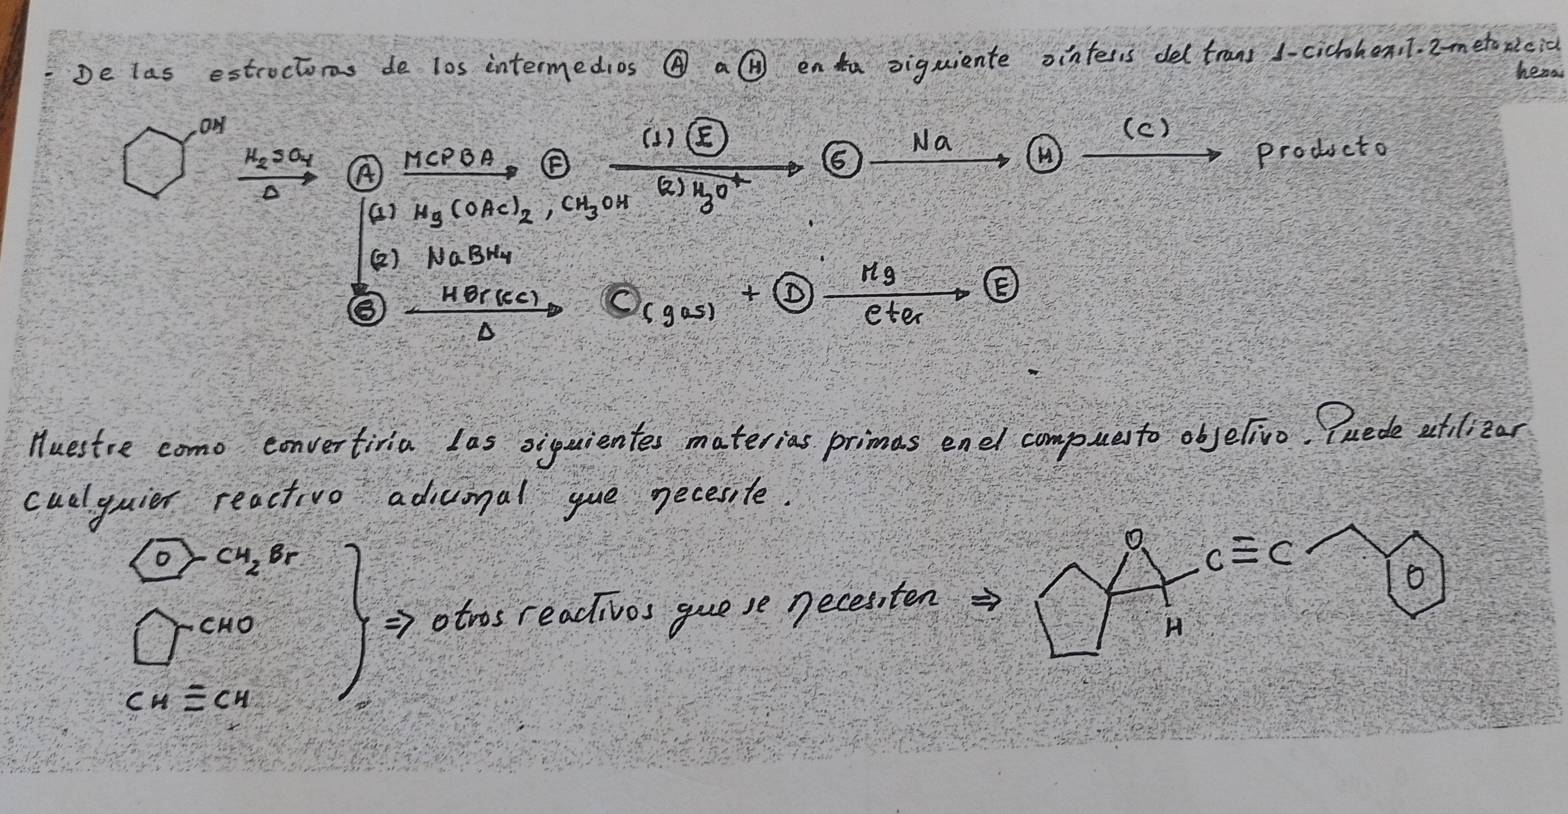 - De las estructuras de los intermedios (A) a (H) en la siguiente síntesis del trans 1-ciclohexil-2-metoxicicl
hexa
OH
H2SO4
Δ
(A)
MCPBA
(F)
(1) (E)
(2) H3O+
(G)
Na
(H)
(C)
Producto
(1) Hg(OAc)2, CH3OH
(2) NaBH4
(B)
HBr(cc)
Δ
C(gas)
+ (D)
Mg
eter
(E)
Muestre como convertiria las siguientes materias primas en el compuesto objetivo. Puede utilizar
cualquier reactivo adicional que necesite.
CH2Br
CHO
CH≡CH
⇒ otros reactivos que se necesiten ⇒
O
C≡C
H